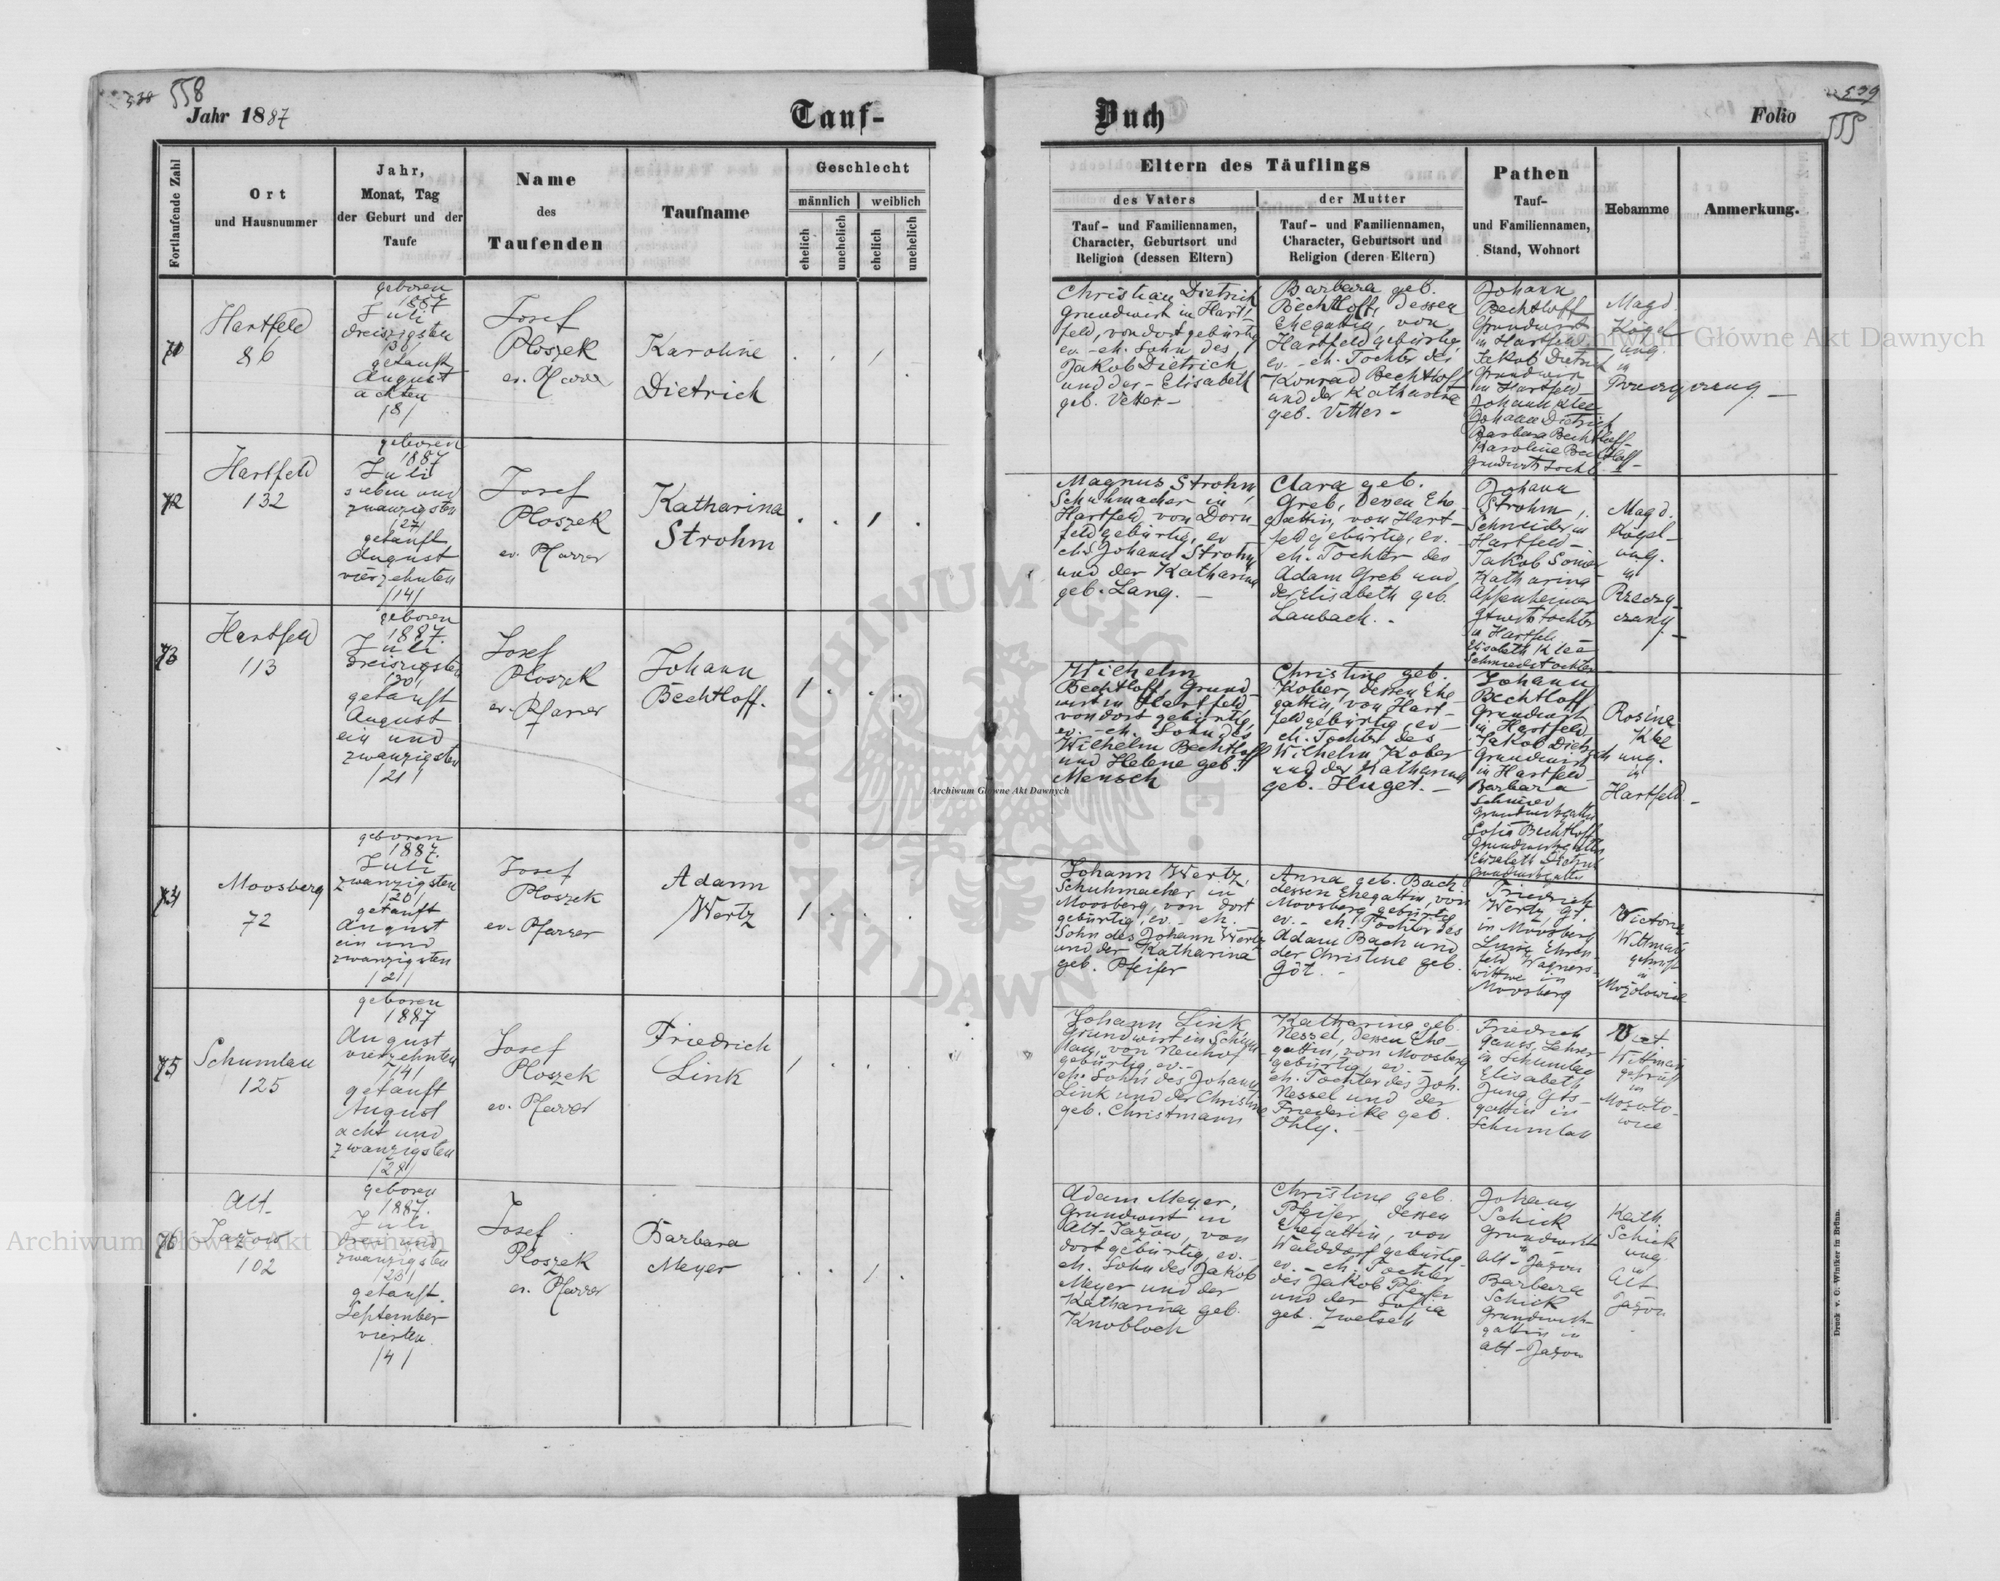 558
Jahr 1887
Tauf-
Fortlaufende Zahl
Ort
und Hausnummer
Jahr,
Monat, Tag
der Geburt und der
Taufe
Name
des
Taufenden
Taufname
Geschlecht
männlich
weiblich
ehelich
unehelich
ehelich
unehelich
71
Hartfeld
86
geboren
1887
Juli
dreiszigsten
/30/
getauft
August
achten
/8/
Josef
Ploszek
ev. Pfarrer
Karoline
Dietrich
72
Hartfeld
132
geboren
1887
Juli
sieben und
zwanzigsten
/27/
getauft
August
vierzehnten
/14/
Josef
Ploszek
ev. Pfarrer
Katharina
Strohm
73
Hartfeld
113
geboren
1887.
Juli
dreiszigsten
/30/
getauft
August
ein und
zwanzigsten
/21/
Josef
Ploszek
ev. Pfarrer
Johann
Bechtloff.
74
Moosberg
72
geboren
1887.
Juli
zwanzigsten
/20/
getauft
August
ein und
zwanzigsten
/21/
Josef
Ploszek
ev. Pfarrer
Adam
Wertz
75
Schumlau
125
geboren
1887
August
vierzehnten
/14/
getauft
August
acht und
zwanzigsten
/28/
Josef
Ploszek
ev. Pfarrer
Friedrich
Link
76
Alt-
Jažow
102
geboren
1887.
Juli
drei und
zwanzigsten
/23/
getauft
September
vierten
/4/
Josef
Ploszek
ev. Pfarrer
Barbara
Meyer
Buch
Folio
539
Eltern des Täuflings
des Vaters
Tauf- und Familiennamen,
Character, Geburtsort und
Religion (dessen Eltern)
der Mutter
Tauf- und Familiennamen,
Character, Geburtsort und
Religion (deren Eltern)
Pathen
Tauf-
und Familiennamen,
Stand, Wohnort
Hebamme
Anmerkung.
Christian Dietrich
Grundwirt in Hart-
feld, von dort gebürtig
ev. - eh. Sohn des
Jakob Dietrich
und der Elisabeth
geb. Vetter -
Barbara geb.
Bechtloff, dessen
Ehegattin, von
Hartfeld gebürtig,
ev. - eh. Tochter des
Konrad Bechtloff
und der Katharina
geb. Vetter -
Johann
Bechtloff
Grundwirt
in Hartfeld
Jakob Dietrich
Grundwirt
in Hartfeld
Johann Klee
Johann Dietrich
Barbara Bechtloff
Karoline Bechtloff
Magd.
Kögel
ung.
in
Magnus Strohm,
Schuhmacher in
Hartfeld, von Dorn-
feld gebürtig, ev
eh. S. Johann Strohm
und der Katharina
geb. Lang. -
Clara geb.
Greb, dessen Ehe-
gattin, von Hart-
feld gebürtig, ev. -
eh. Tochter des
Adam Greb und
der Elisabeth geb.
Laubach. -
Johann
Strohm,
Schneider in
Hartfeld -
Katharina
in Hartfeld
Elisabeth Klee
Schmiedstochter
Magd.
Kögel
ung.
in
Wilhelm
Bechtloff, Grund-
wirt in Hartfeld,
von dort gebürtig,
ev. - eh. Sohn des
Wilhelm Bechtloff
und Helene geb.
Mensch
Christine geb.
Kober, dessen Ehe-
gattin, von Hart-
feld gebürtig, ev -
eh. Tochter des
Wilhelm Kober
und der Katharina
geb. Huget. -
Johann
Bechtloff
Grundwirt
in Hartfeld
Jakob Dietrich
Grundwirt
in Hartfeld
Barbara
Sofia Bechtloff
Elisabeth Dietrich
Rosina
Klee
ung.
in
Hartfeld -
Johann Wertz,
Schuhmacher in
Moosberg, von dort
gebürtig, ev. - eh.
Sohn des Johann Wertz
und der Katharina
geb. Pfeifer
Anna geb. Bach,
dessen Ehegattin, von
Moosberg gebürtig
ev. - eh. Tochter des
Adam Bach und
der Christine geb.
Göt. -
Friedrich
Wertz,
in Moosberg
Luise Ehren-
feld Wagners-
wittwe in
Moosberg
Victoria
Wittmann
geprüft
in
Johann Link
Grundwirt in Schum-
lau, von Neuhof
gebürtig, ev. -
eh. Sohn des Johann
Link und der Christine
geb. Christmann
Katharina geb.
Nessel, dessen Ehe-
gattin, von Moosberg
gebürtig, ev. -
eh. Tochter des Joh.
Nessel und der
Friederike geb.
Ohly.
Friedrich
Gauss, Lehrer
in Schumlau
Elisabeth
Jung, Gts-
gattin in
Schumlau
Vict.
Wittmann
geprüft
in
Adam Meyer,
Grundwirt in
Alt-Jažow, von
dort gebürtig, ev. -
eh. Sohn des Jakob
Meyer und der
Katharina geb.
Knobloch
Christine geb.
Pfeifer, dessen
Ehegattin, von
Walddorf gebürtig
ev. - eh. Tochter
des Jakob Pfeifer
und der Sofia
geb. Zwetsch
Johann
Schick
Grundwirt
in
Alt-Jažow
Barbara
Schick
Grundwirts-
gattin in
Alt-Jažow
Kath.
Schick
ung.
in
Alt
Jažow
Druck v. G. Winiker in Brünn.
Archiwum Główne Akt Dawnych
Archiwum Główne Akt Dawnych
Archiwum Główne Akt Dawnych